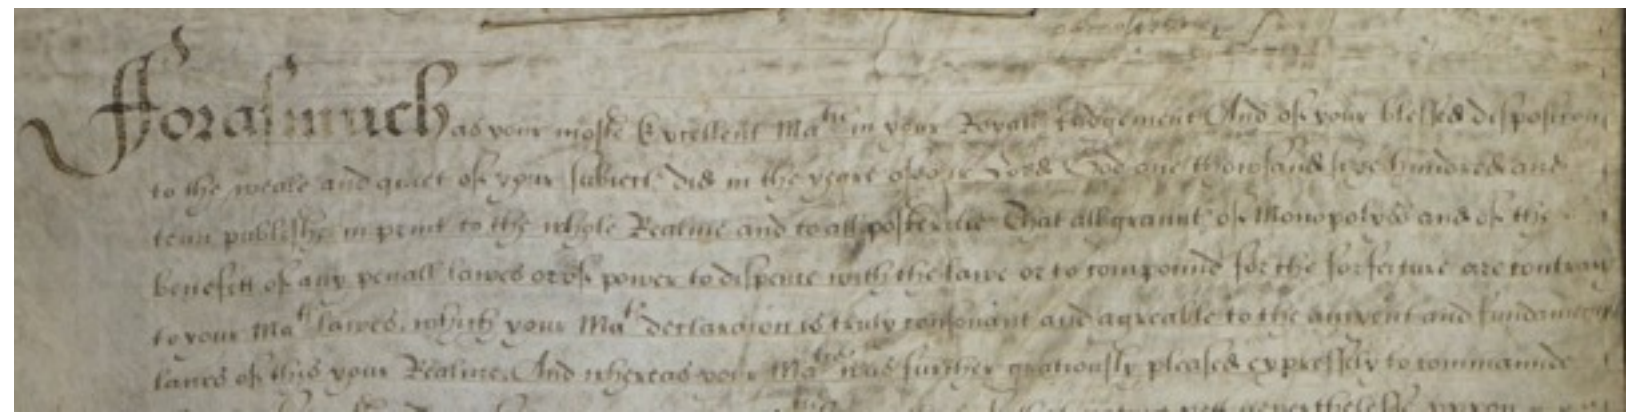 Forasmuch as your moste Excellent Matie in your Royall Judgement And of your blessed disposition
to the weale and quiet of your subiectes did in the yeare of our Lord God one thowsand six hundred and
tenn publishe in print to the whole Realme and to all posteritie That all grauntes of Monopolyes and of the
benefitt of any penall lawes or of power to dispence with the lawe or to compound for the forfeiture are contrary
to your Mates lawes, which your Mates declaracion is truly consonant and agreable to the auncyent and fundamentall
lawes of this your Realme. And whereas your Matie was further graciously pleased expressely to commaunde
neverthelesse uppon